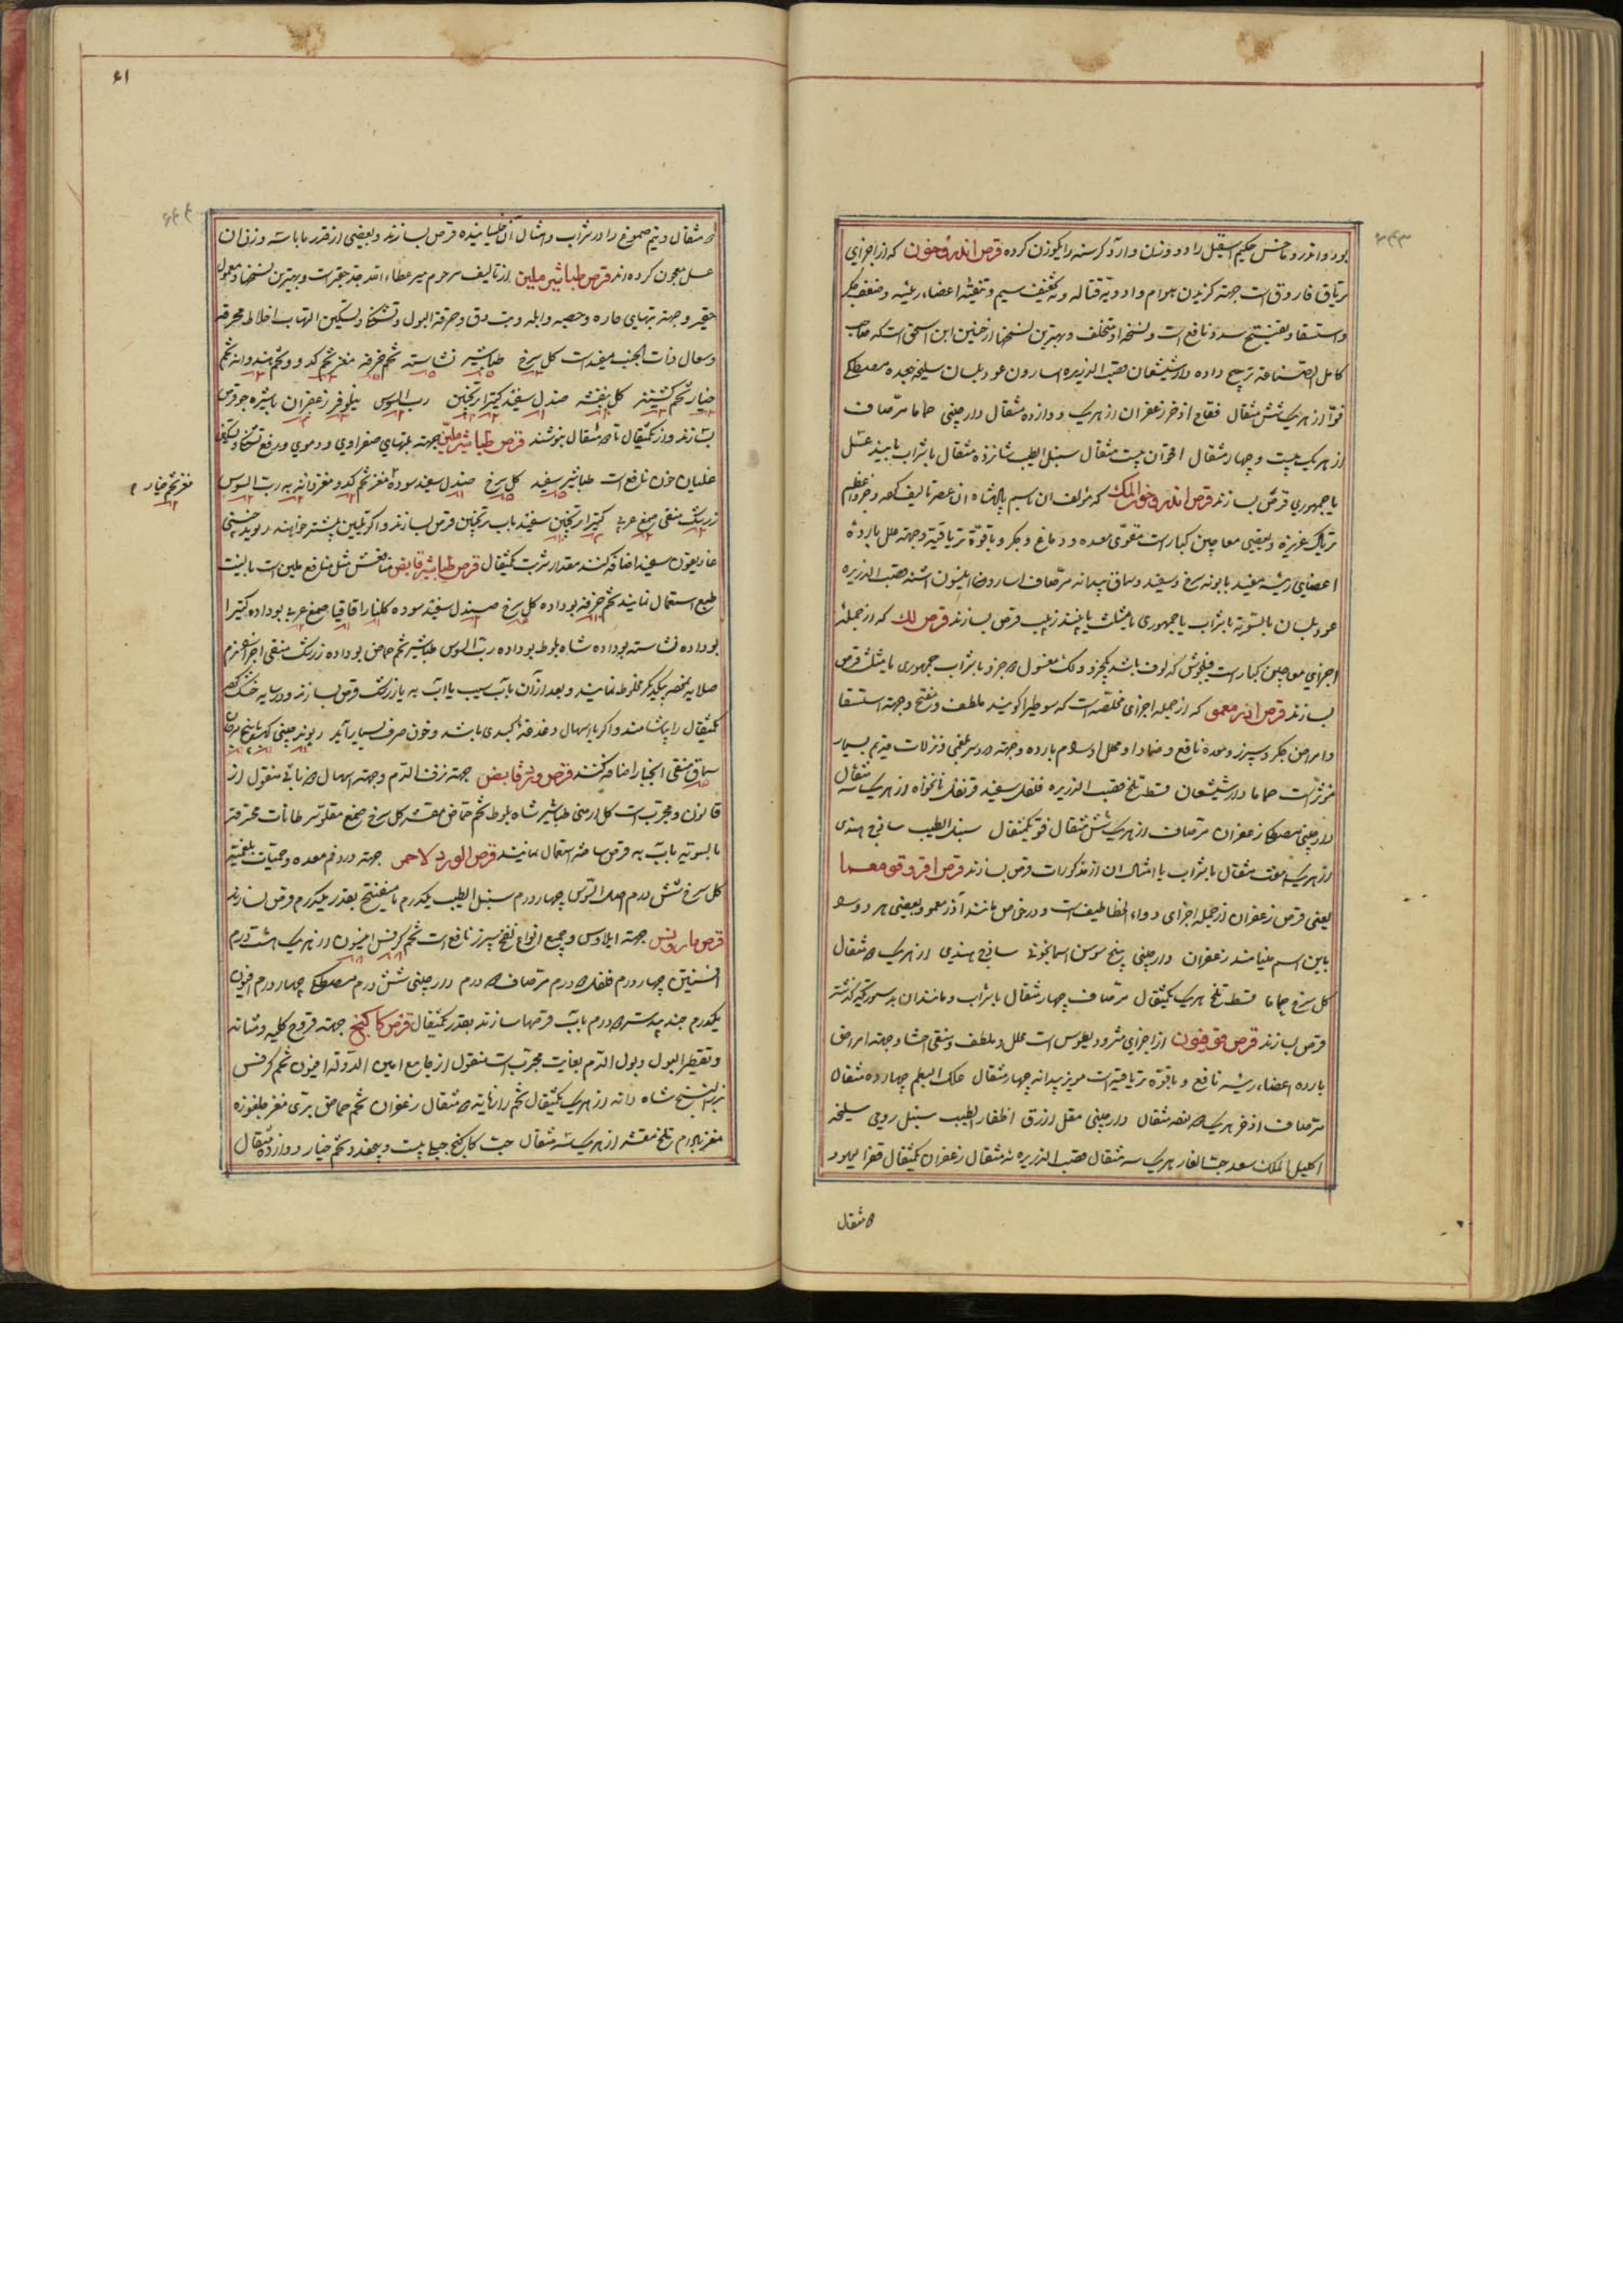 بود و اندرو ماخس حکیم اسقیل را دو وزن و آرد کرسنه را یکوزن کرده قرص اندروخون که از اجزای
تریاق فاروق است جهة گزیدن هوام و ادویه قتاله و تخفیف سیم و تنقیه اعضاء رئیسه و ضعف جگر
و استسقا و تفتیح سدد نافع است و نسخه او مختلف و بهترین نسخها از حنین ابن اسحق است که صاحب
کامل الصناعه ترجیح داده دارشیشعان قصب الذریره اسارون عود بلسان سلیخه بجده مصطکی
فو از هریک شش مثقال فقاح اذخر زعفران از هریک دوازده مثقال دارچینی حماما مر صاف
از هریک بیست و چهار مثقال اقحوان بیست مثقال سنبل الطیب شانزده مثقال با شراب یا نبیذ عسل
یا جمهوری قرص بسازند قرص اندروخو الملک که مؤلف ان باسم پادشاه ان عصر تالیف کرده و جزو اعظم
تریاک عزیزه و بعضی معاجین کبار است مقوی معده و دماغ و جگر و با قوة تریاقیة و جهة علل بارده
اعضای رئیسه مفید بابونه سرخ و سفید و سماق بیدانه مر صاف اسارون انیسون اشنه قصب الذریره
عود بلسان بالسویه با شراب یا جمهوری یا مثلث یا نبیذ زبیب قرص بسازند قرص لک که از جمله
اجزای معاجین کبار است فیلجوش که لوف باشد یکجزو و لک مغسول ۵ جزو با شراب جمهوری یا مثلث قرص
بسازند قرص ادرمعمو که از جمله اجزای مخلصه است که سوطیرا گویند ملطف و مفتح و جهة استسقا
و امراض جگر و سپرز و معده نافع و ضمادا و محلل اورام بارده و جهة درد سر بلغمی و نزلات قدیم بسیار
مؤثر است حماما دارشیشعان قسط تلخ قصب الذریره فلفل سفید قرنفل نانخواه از هریک سه مثقال
دارچینی مصطکی زعفران مر صاف از هریک شش مثقال فو یکمثقال سنبل الطیب ساذج هندی
از هریک هفت مثقال با شراب یا امثال ان از مذکورات قرص بسازند قرص اقروقومعما
یعنی قرص زعفران از جمله اجزای دواء الخطاطیف است و در خواص مانند آذرمعمو و بعضی هر دو را
باین اسم مینامند زعفران دارچینی بیخ سوسن اسمانجونی ساذج هندی از هریک ۵ مثقال
گل سرخ حماما قسط تلخ هریک یکمثقال مر صاف چهار مثقال با شراب و مانند ان بدستوریکه گذشته
قرص بسازند قرص قوفیون از اجزای مثرودیطوس است محلل و ملطف و منقی احشا و جهة امراض
بارده اعضاء رئیسه نافع و با قوة تریاقیه است مویز بیدانه چهار مثقال علک البطم چهارده مثقال
مر صاف اذخر هریک ۵ نصفه مثقال دارچینی مقل ازرق اظفار الطیب سنبل رومی سلیخه
اکلیل الملک سعد حب الغار هریک سه مثقال قصب الذریره نه مثقال زعفران یکمثقال قفر الیهود
۵ مثقال
۶۱
۵ مثقال و نیم صموغ را در شراب و امثال آن خیسانیده قرص بسازند و بعضی از قدر ما با سه وزن ان
عسل معجون کرده اند قرص طباشیر ملین از تالیف مرحوم میر عطاء الله جد حقیر است و بهترین نسخها و معمول
حقیر و جهة تبهای حاره و حصبه و ابله و تب دق و حرقة البول و تشنگی و تسکین التهاب اخلاط محرقه
و سعال و ذات الجنب مفید است گل سرخ طباشیر نشاسته تخم خرفه مغز تخم کدو و تخم هندوانه تخم
خیار تخم کشنیز گل بنفشه صندل سفید کتیرا ترنجبین رب السوس نیلوفر زعفران با شیره جو قرص
بسازند و از یکمثقال تا ۵ مثقال بنوشند قرص طباشیر ملین جهة تبهای صفراوی و دموی و رفع تشنگی و تسکین
غلیان خون نافع است طباشیر سفید گل سرخ صندل سفید سوده مغز تخم کدو مغز دانه به رب السوس
مغز تخم خیار
زرشک منقی صمغ عربی کتیرا ترنجبین سفید باب ترنجبین قرص بسازند و اگر تلیین بیشتر خواهند ریوند چینی
غاریقون سفید اضافه کنند مقدار شربت یکمثقال قرص طباشیر قابض منافعش مثل منافع ملین است با لینت
طبع استعمال نمایند تخم خرفه بو داده گل سرخ صندل سفید سوده گلنار اقاقیا صمغ عربی بو داده کتیرا
بو داده نشاسته بو داده شاه بلوط بو داده رب السوس طباشیر تخم حماض بو داده زرشک منقی اجزا نرم
صلایه نموده بیکدیگر مخلوط نمایند و بعد از آن باب سیب یا اب به یا زرشک قرص بسازند و در سایه خشک کنند
یکمثقال را بیاشامند و اگر با اسهال و غدغه کبدی باشد و خون صرف بسیار آید ریوند چینی کهربا بیخ مرجان
سماق منقی انجبار اضافه کنند قرص ورد قابض جهة نزف الدم و جهة اسهال ۵ نافع منقول از
قانون و مجرب است گل ارمنی طباشیر شاه بلوط تخم حماض مقشر گل سرخ صمغ مقلو سرطانات محترقه
بالسویه باب به قرص ساخته استعمال نمایند قرص الورد الاحمر جهة درد فم معده و حمیات بلغمیه
گل سرخ شش درم اصل السوس چهار درم سنبل الطیب یکدرم با میفختج بقدر یکدرم قرص بسازند
قرص مارونس جهة ایلاوس و جمیع انواع نفخ سپرز نافع است تخم کرفس انیسون از هریک هشت درم
افسنتین چهار درم فلفل ۵ درم مر صاف ۵ درم دارچینی شش درم مصطکی چهار درم افیون
یکدرم جندبیدستر ۵ درم باب قرصها سازند بقدر یکمثقال قرص کاکنج جهة قروح کلیه و مثانه
و تقطیر البول و بول الدم بغایت مجرب است منقول از جامع امین الدوله افیون تخم کرفس
بزر البنج شاه دانه از هریک یکمثقال تخم رازیانه ۵ مثقال زعفران تخم حماض بری مغز چلغوزه
مغز بادام تلخ مقشر از هریک سه مثقال حب کاکنج جبلی بیست و پنج عدد تخم خیار دوازده مثقال